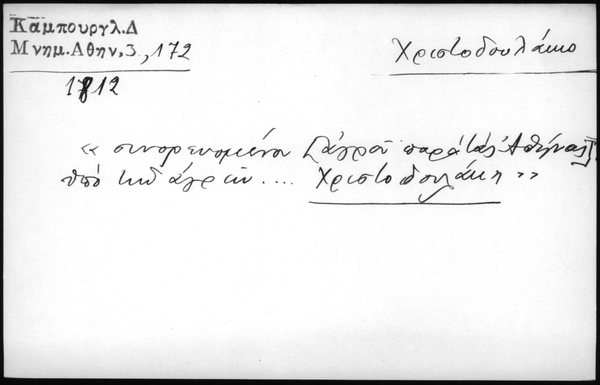 Καμπουργλ.Δ
Μνημ.Αθην,3, 172
Χριστοδουλάκη
1812
« συνορευομένου [ἀγροῦ παρὰ τὰς Ἀθήνας]
ὑπὸ τῶν ἀγρῶν .... Χριστοδουλάκη »